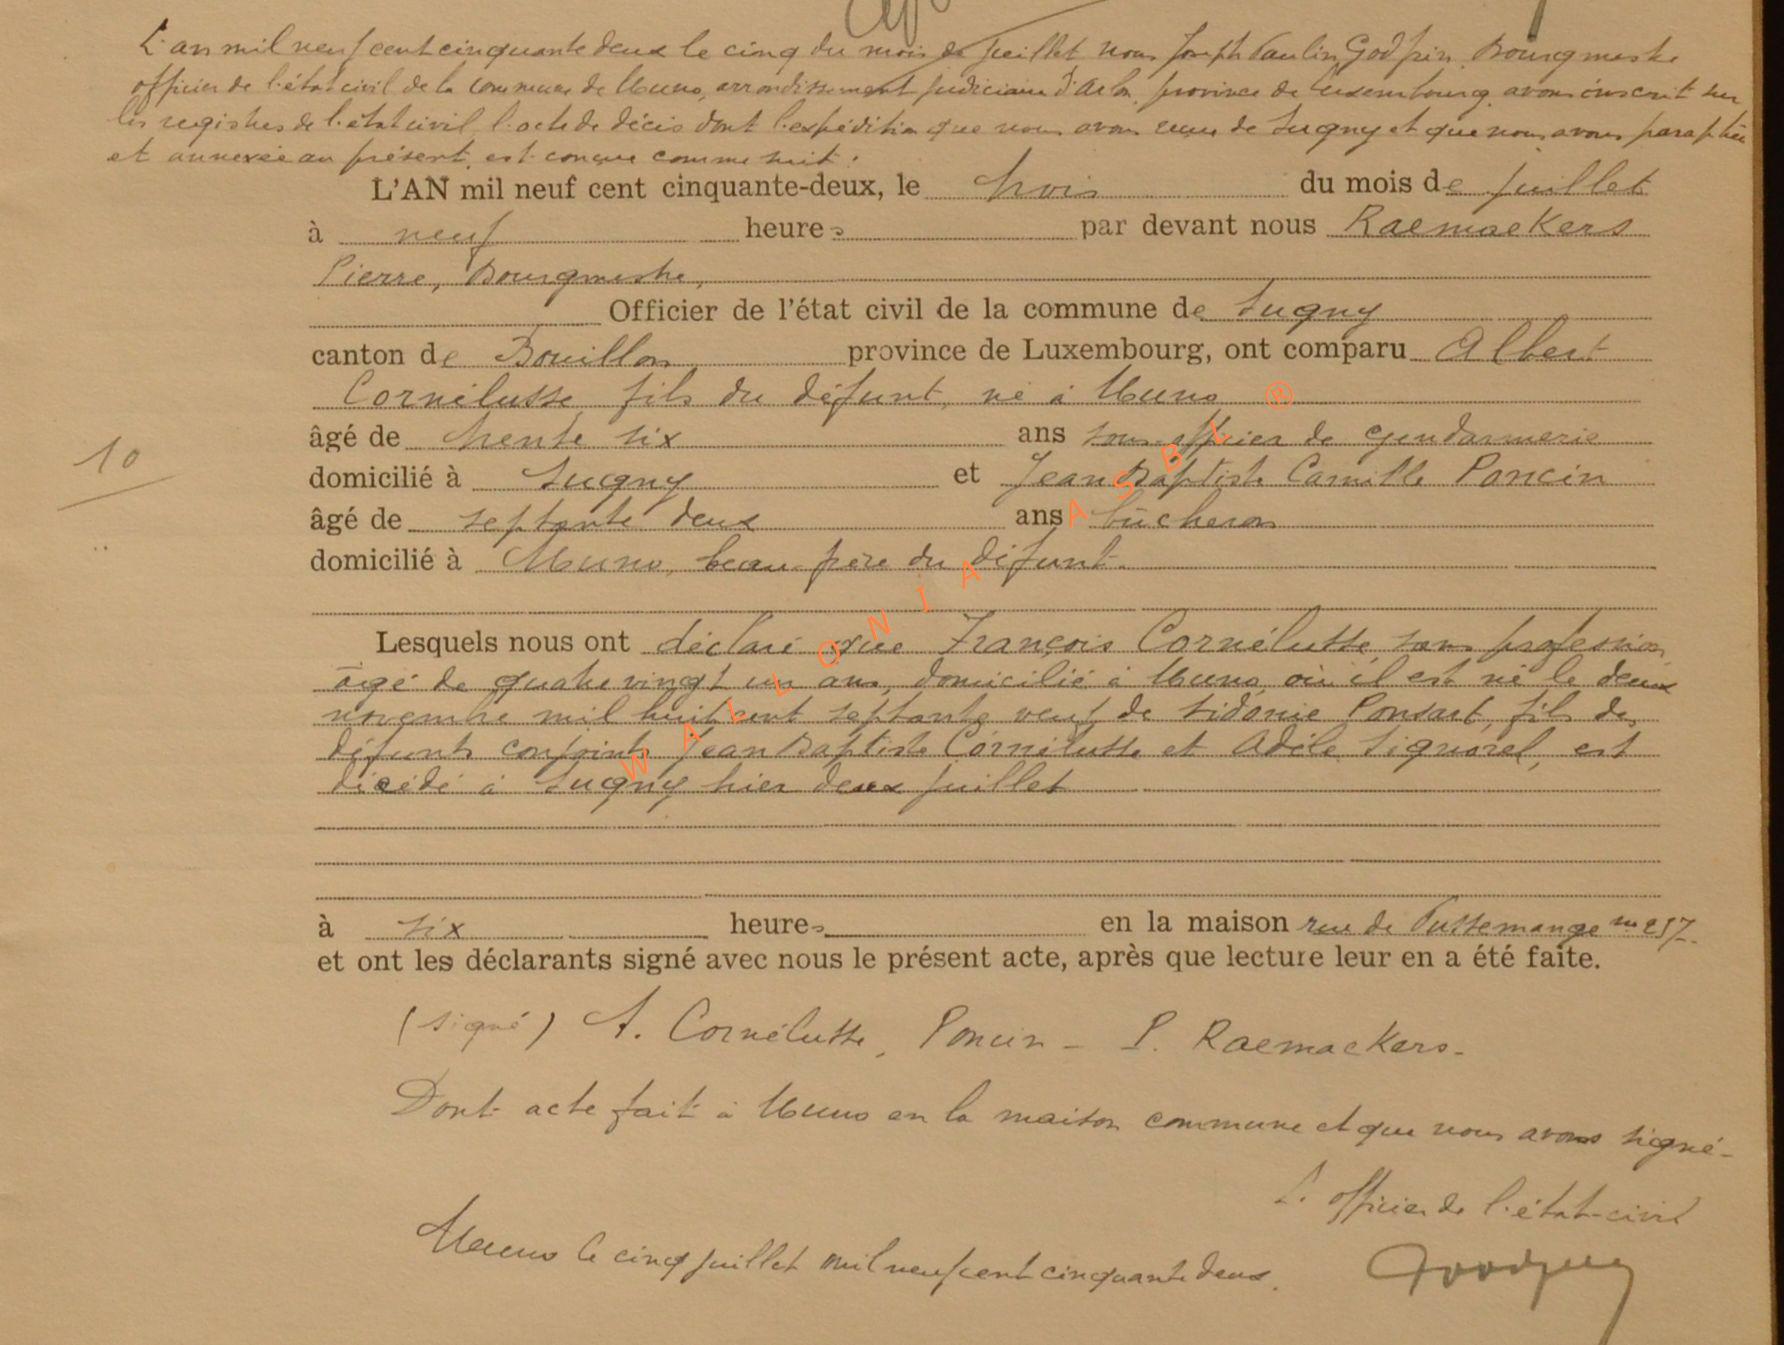 L'an mil neuf cent cinquante deux le cinq du mois de juillet nous Joseph Paulin Godfrin Bourgmestre
officier de l'état civil de la commune de Muno, arrondissement judiciaire d'Arlon, province de Luxembourg, avons inscrit sur
les registres de l'état civil, l'acte de décès dont l'expédition que nous avons reçue de Sugny et que nous avons paraphée
et annexée au présent est conçue comme suit :
L'AN mil neuf cent cinquante-deux, le trois du mois de juillet
à neuf heures par devant nous Raemaekers
Pierre, Bourgmestre,
Officier de l'état civil de la commune de Sugny
canton de Bouillon province de Luxembourg, ont comparu Albert
Cornélusse, fils du défunt, né à Muno
10
âgé de trente six ans sous-officier de gendarmerie
domicilié à Sugny et Jean Baptiste Camille Poncin
âgé de septante deux ans bûcheron
domicilié à Muno, beau-frère du défunt.
Lesquels nous ont déclaré que François Cornélusse, sans profession,
âgé de quatre vingt un ans, domicilié à Muno, où il est né le deux
novembre mil huit cent septante, veuf de Sidonie Ponsart, fils des
défunts conjoints Jean Baptiste Cornélusse et Adèle Signorel, est
décédé à Sugny hier deux juillet
à six heures en la maison rue de Pussemange no 257.
et ont les déclarants signé avec nous le présent acte, après que lecture leur en a été faite.
(signé) A. Cornélusse, Poncin - P. Raemaekers.
Dont acte fait à Muno en la maison commune et que nous avons signé.
L'officier de l'état-civil
Muno le cinq juillet mil neuf cent cinquante deux.
WALLONIA ASBL ®